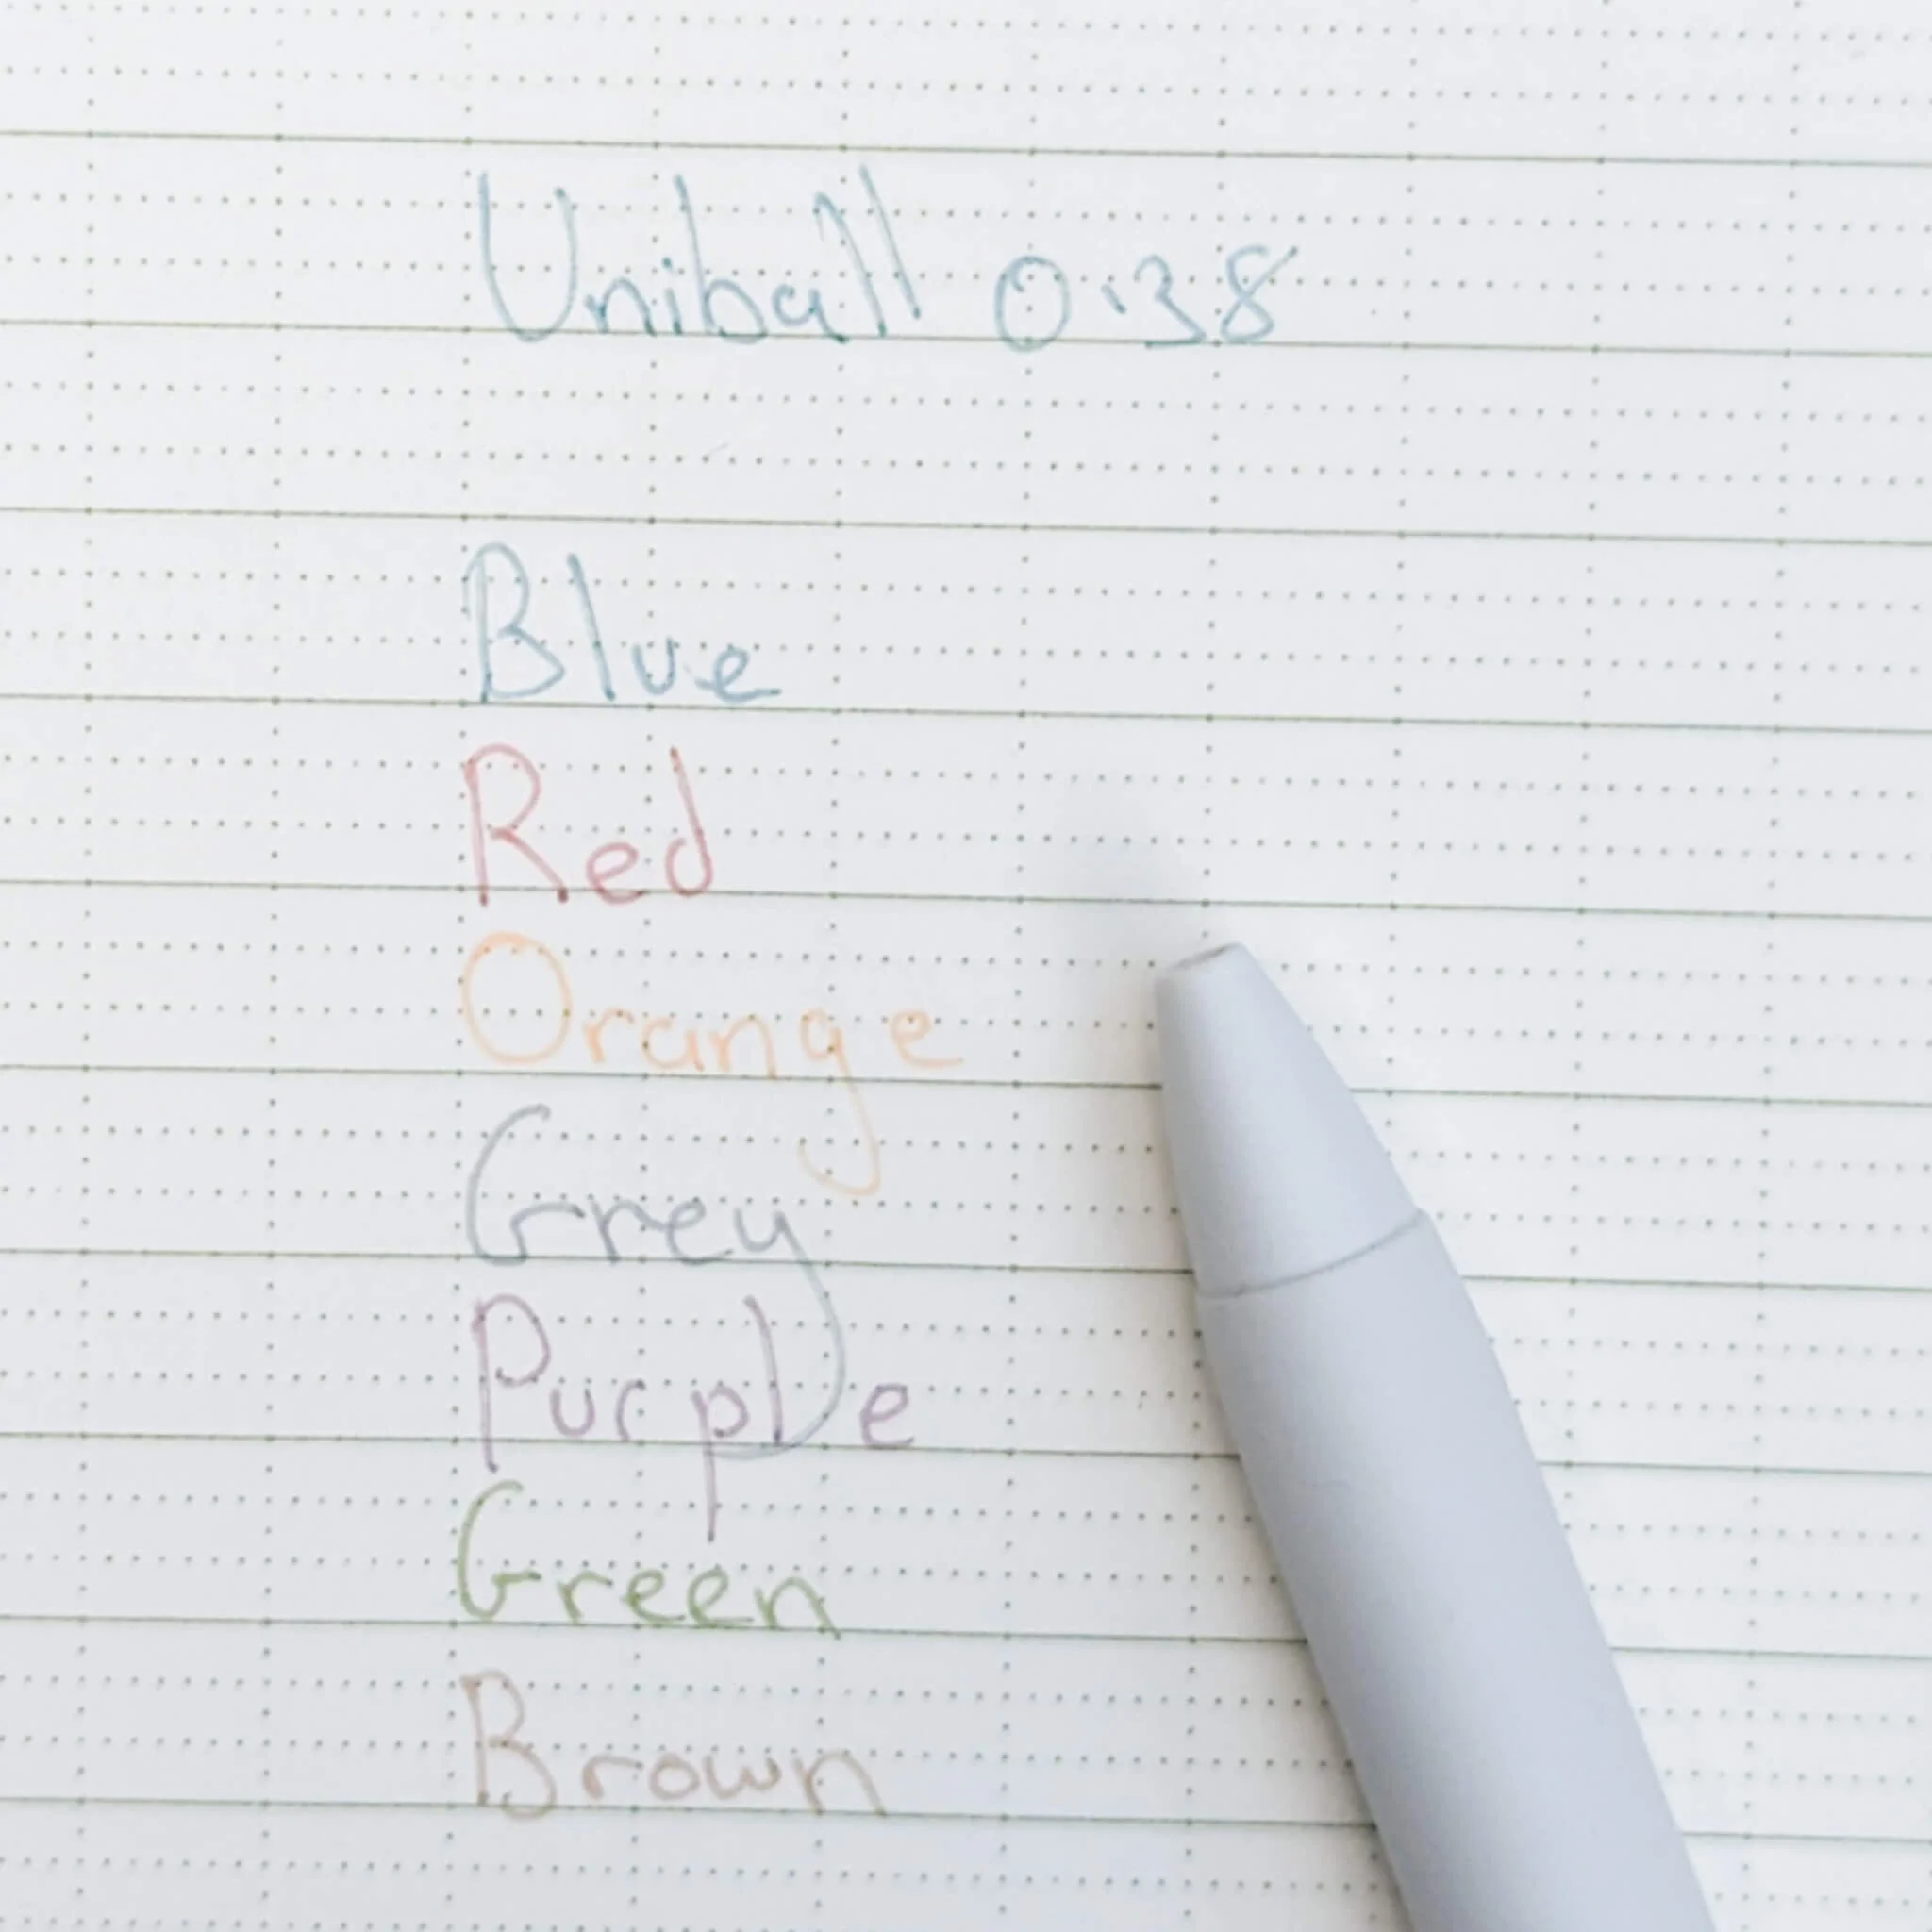 Uniball 0.38
Blue
Red
Orange
Grey
Purple
Green
Brown